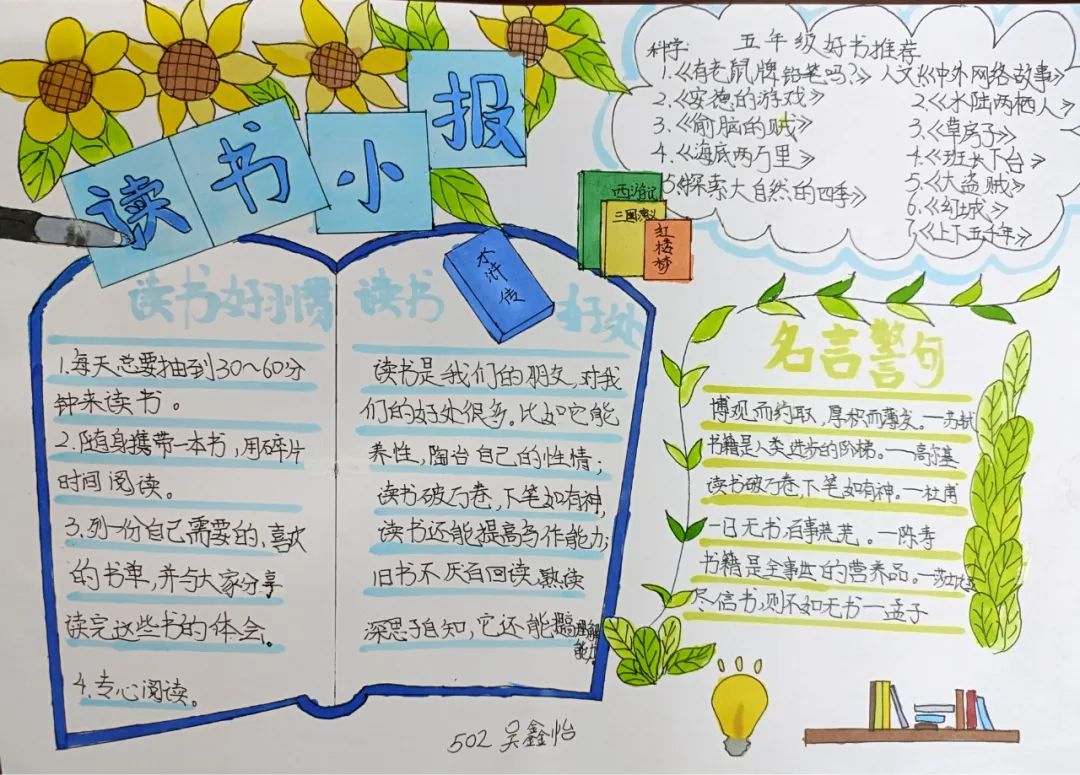 读书小报
五年级好书推荐
科学:
1.《有老鼠牌铅笔吗?》
2.《安德的游戏》
3.《偷脑的贼》
4.《海底两万里》
5.《探索大自然的四季》
人文:1.《中外网络故事》
2.《水陆两栖人》
3.《草房子》
4.《班长下台》
5.《大盗贼》
6.《幻城》
7.《上下五千年》
西游记
三国演义
红楼梦
水浒传
读书好习惯
1.每天总要抽到30~60分
钟来读书。
2.随身携带一本书,用碎片
时间阅读。
3.列一份自己需要的、喜欢
的书单,并与大家分享
读完这些书的体会。
4.专心阅读。
读书好处
读书是我们的朋友,对我
们的好处很多。比如它能
养性,陶冶自己的性情;
读书破万卷,下笔如有神,
读书还能提高写作能力;
旧书不厌百回读,熟读
深思子自知,它还能搞理解
能力。
名言警句
博观而约取,厚积而薄发。—苏轼
书籍是人类进步的阶梯。—高尔基
读书破万卷,下笔如有神。—杜甫
一日无书,百事荒芜。—陈寿
书籍是全事世的营养品。—莎士比亚
尽信书,则不如无书—孟子
502 吴鑫怡